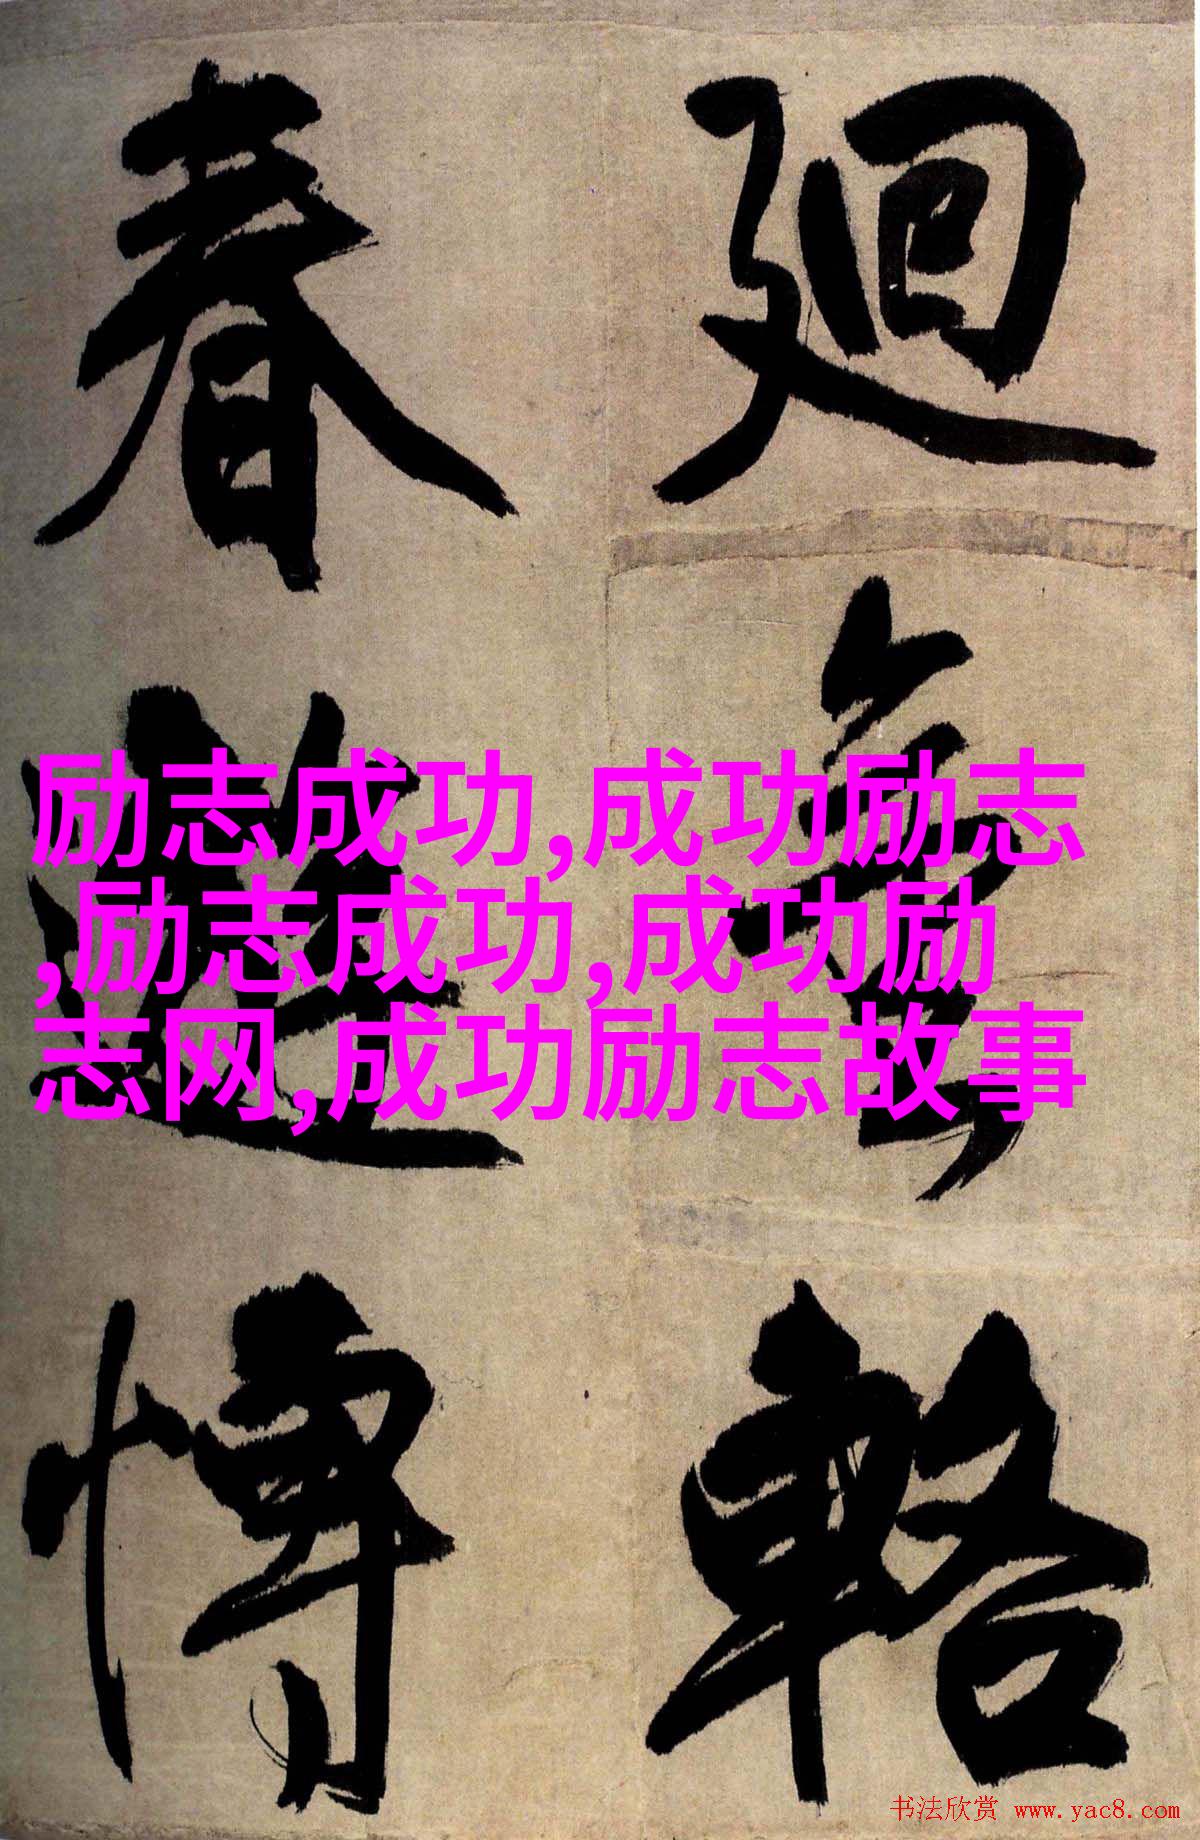 廻
輅
春
励志成功,成功励志
,励志成功,成功励
志网,成功励志故事
书法欣赏 www.yac8.com